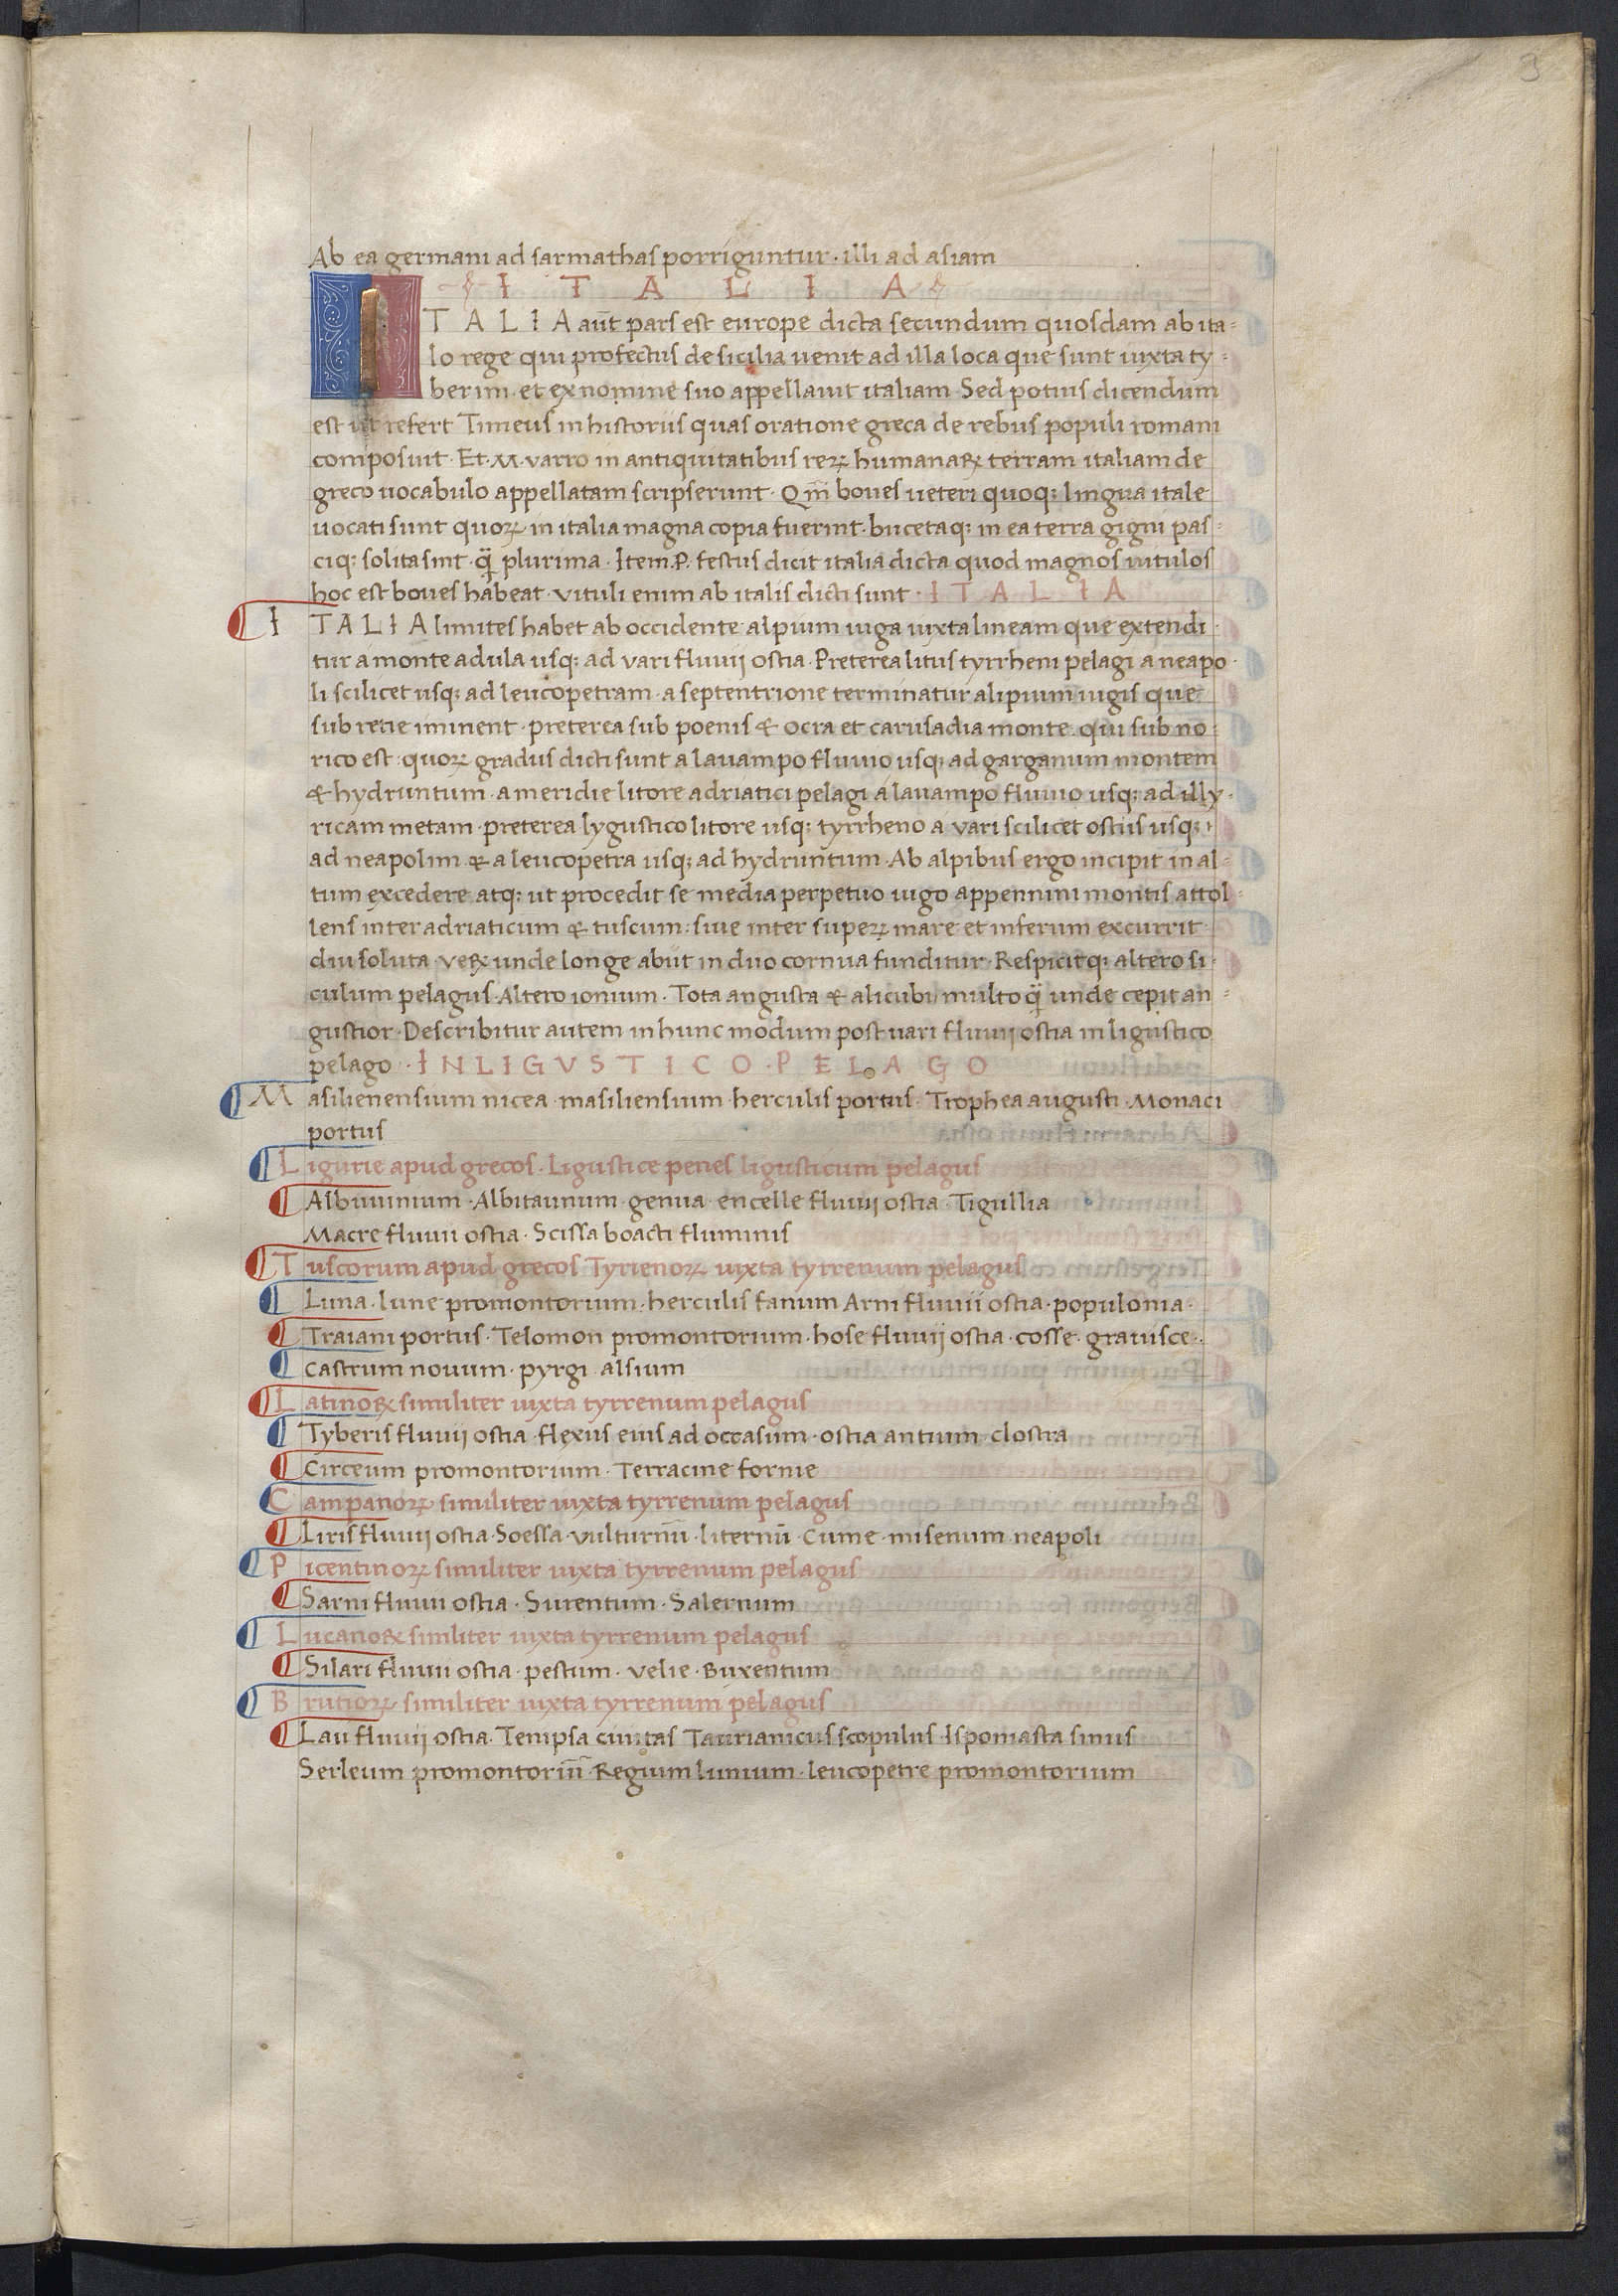 3
Ab ea germani ad sarmathas porriguntur · illi ad asiam
I T A L I A
I T A L I A aut̄ pars est europe dicta secundum quosdam ab ita=
lo rege qui profectus de sicilia uenit ad illa loca que sunt iuxta ty=
berim · et ex nomine suo appellauit italiam · Sed potius dicendum
est ut refert Timeus in historiis quas oratione greca de rebus populi romani
composuit · Et · M · varro in antiquitatibus reꝝ humanaꝝ terram italiam de
greco uocabulo appellatam scripserunt · Qm̄ boues ueteri quoq; lingua itale
uocati sunt quoꝝ in italia magna copia fuerint · bucetaq; in ea terra gigni pas=
ciq; solita sint · q̄ plurima · Item · P · festus dicit italia dicta quod magnos uitulos
hoc est boues habeat · vituli enim ab italis dicti sunt · I T A L I A
I T A L I A limites habet ab occidente alpium iuga iuxta lineam que extendi·
tur a monte adula usq; ad vari fluuij ostia · Preterea litus tyrrheni pelagi a neapo·
li scilicet usq; ad leucopetram · a septentrione terminatur alipium iugis que
sub retie iminent · preterea sub poenis & ocra et carusadia monte · qui sub no·
rico est · quoꝝ gradus dicti sunt a lauampo fluuio usq; ad garganum montem
& hydruntum · a meridie litore adriatici pelagi a lauampo fluuio usq; ad illy·
ricam metam · preterea lygustico litore usq; tyrrheno a vari scilicet ostiis usq;
ad neapolim · & a leucopetra usq; ad hydruntum · Ab alpibus ergo incipit in al=
tum excedere atq; ut procedit se media perpetuo iugo appennini montis attol=
lens inter adriaticum & tuscum : siue inter supeꝝ mare et inferum excurrit
diu soluta · veꝝ unde longe abiit in duo cornua funditur · Respicitq; altero si·
culum pelagus · Altero ionium · Tota angusta & alicubi multo q̄ unde cepit an=
gustior · Describitur autem in hunc modum post uari fluuij ostia in ligustico
pelago · I N L I G V S T I C O · P E L A G O
Masilienensium nicea · masiliensium · herculis portus · Trophea augusti · Monaci
portus
Ligurie apud grecos · Ligustice penes ligusticum pelagus
Albiuinium · Albitaunum · genua · encelle fluuij ostia · Tigullia
Macre fluuii ostia · Scissa boacti fluminis
Tuscorum apud grecos Tyrienoꝝ iuxta tyrrenum pelagus
Luna · lune promontorium · herculis fanum Arni fluuii ostia · populonia ·
Traiani portus · Telomon promontorium · hose fluuij ostia · cosse · grauisce ·
castrum nouum · pyrgi · alsium
Latinoꝝ similiter iuxta tyrrenum pelagus
Tyberis fluuij ostia · flexus eius ad occasum · ostia antium clostra
Circeum promontorium · Terracine formie
Campanoꝝ similiter iuxta tyrrenum pelagus
Liris fluuij ostia · Soessa · vulturnū · liternū · Cume · misenum · neapoli
Picentinoꝝ similiter iuxta tyrrenum pelagus
Sarni fluuii ostia · Surentum · Salernum
Lucanoꝝ similiter iuxta tyrrenum pelagus
Silari fluuii ostia · pestum · velie · Buxentum
Brutioꝝ similiter iuxta tyrrenum pelagus
Lau fluuij ostia · Tempsa ciuitas Taurianicus scopulus · Ispomasta sinus
Serleum promontoriū · Regium lunium · leucopetre promontorium